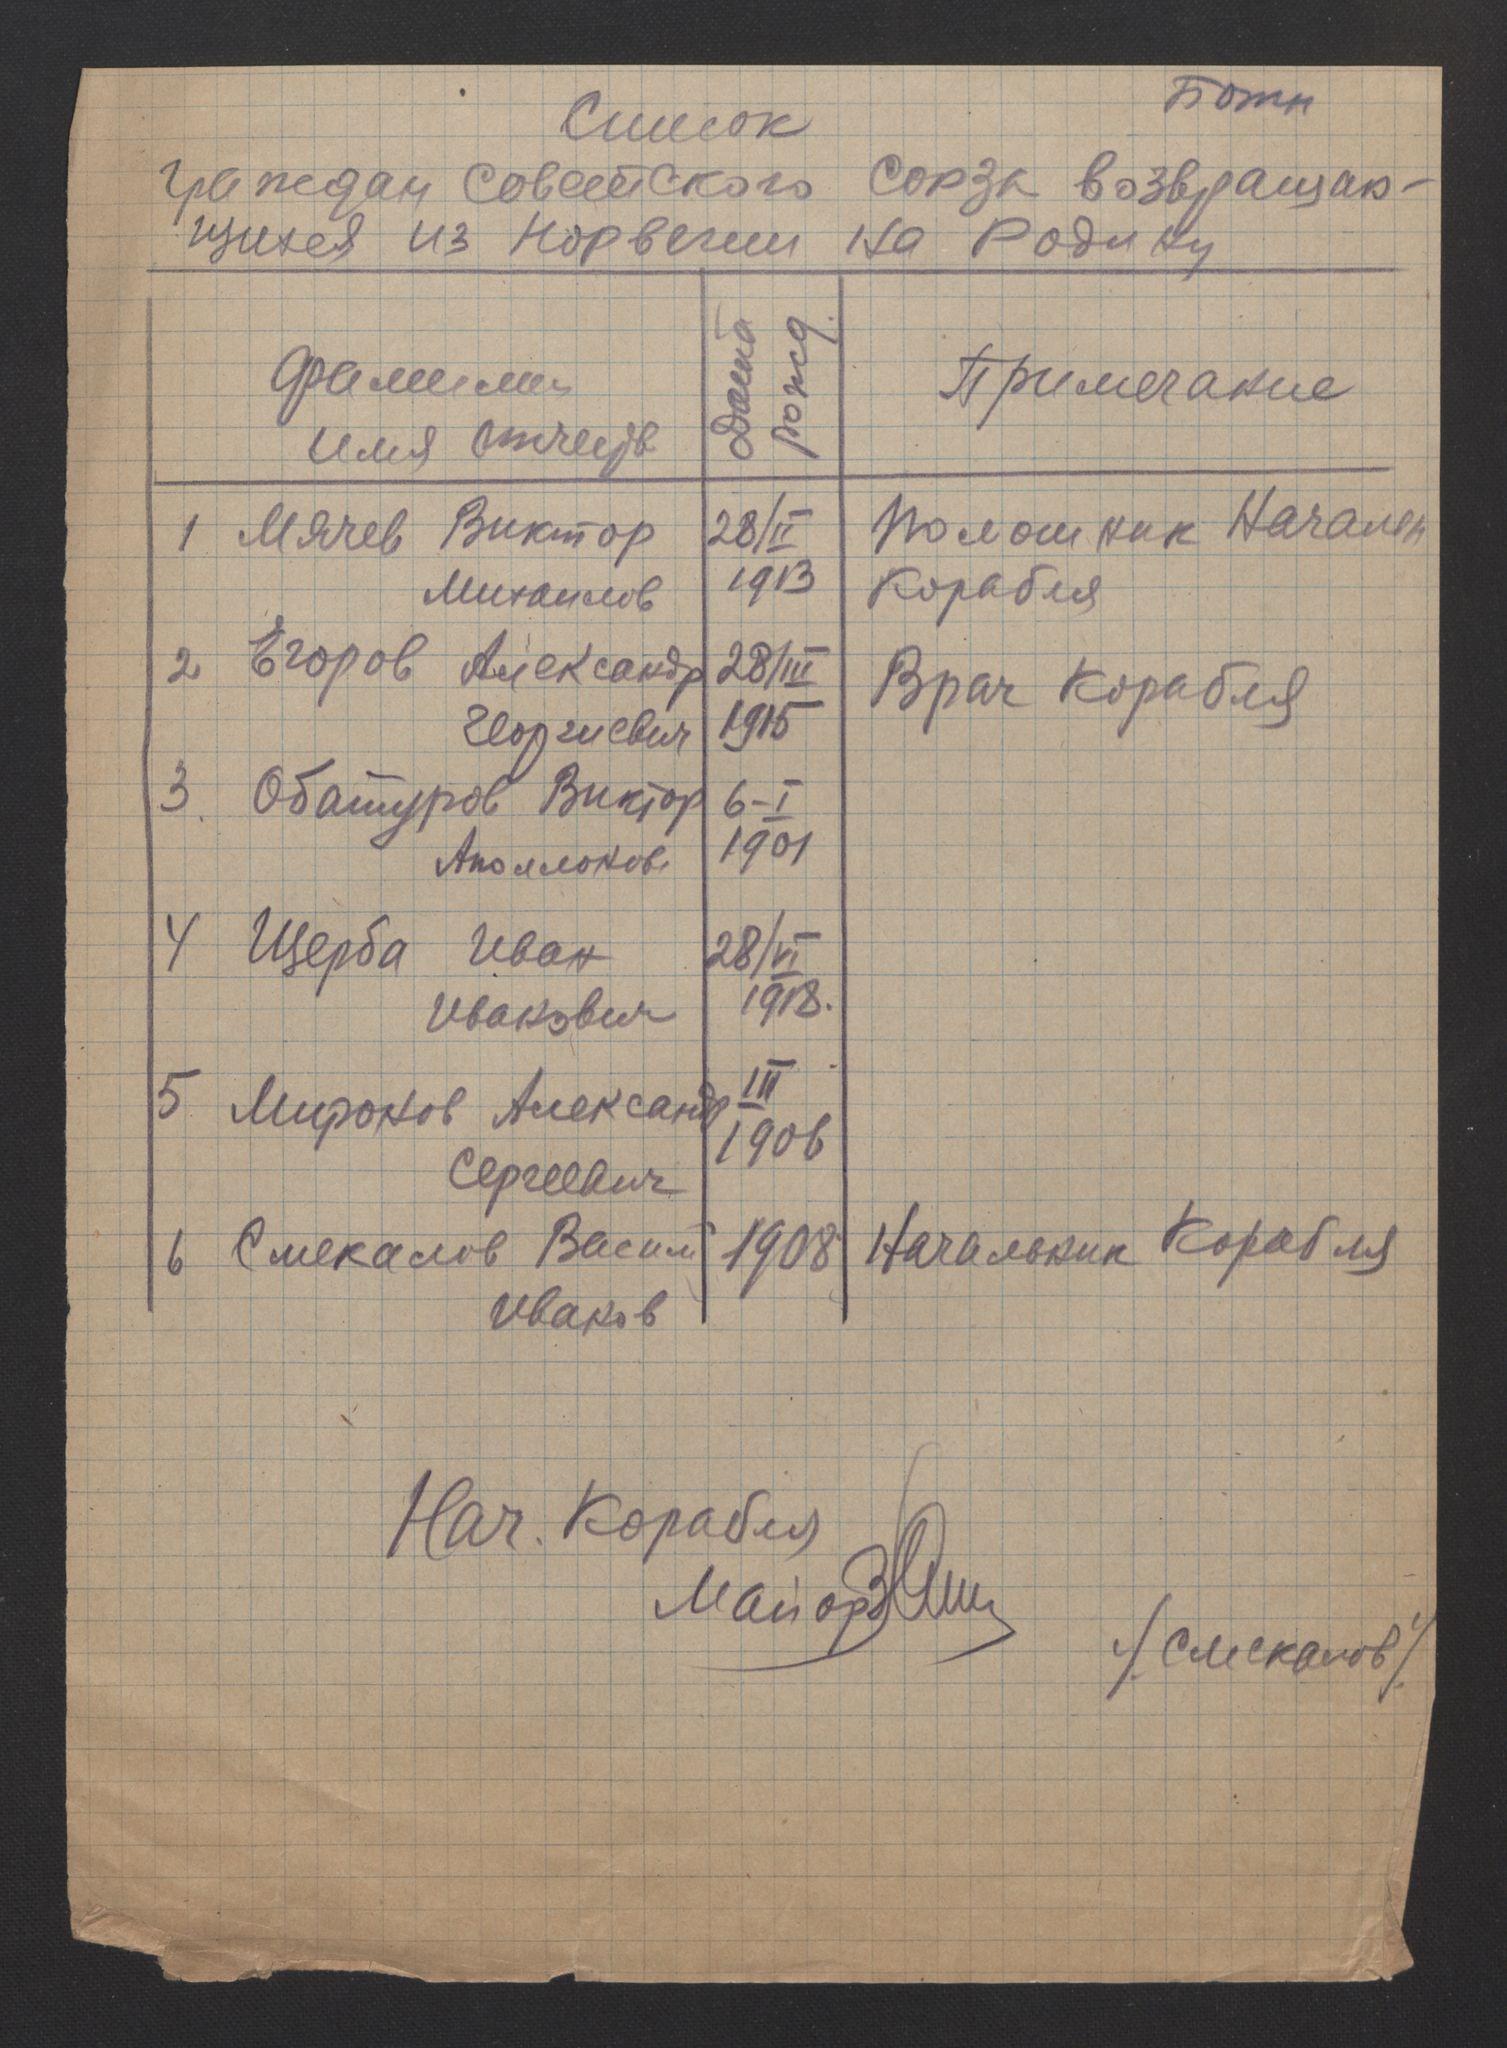 Список
Граждан Советского Союза возвращаю-
щихся из Норвегии на Родину
Фамилия
имя отчеств
Дата
рожд.
Примечание
1 Мячев Виктор 28/II Помошник Начальн
Михаилов 1913 Корабля
2 Егоров Александр 28/III Врач Корабля
Георгиевич 1915
3. Обатуров Виктор 6-I
Аполлонов 1901
4 Щерба Иван 28/VI
Иванович 1918.
5 Миронов Александр III
Сергеевич 1906
6 Смекалов Васили 1908 Начальник Корабля
Иванов
Нач. Корабля
Майор
/Смекалов/